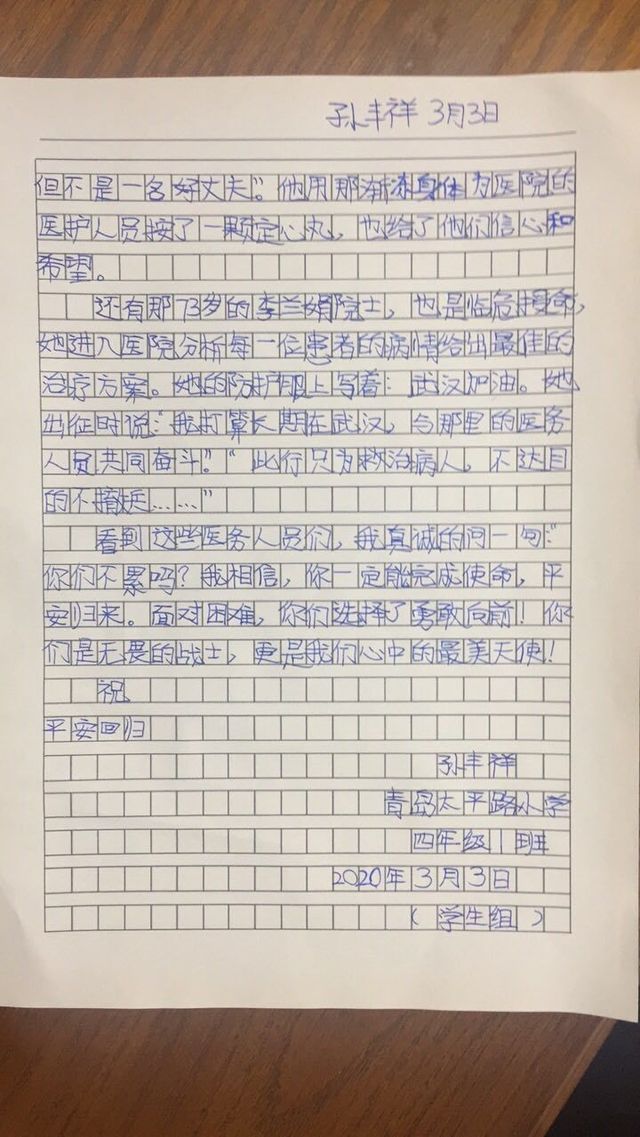 孙丰祥 3月3日
但不是一名好丈夫”。他用那渐冻身体为医院的
医护人员按了一颗定心丸，也给了他们信心和
希望。
还有那73岁的李兰娟院士，也是临危授命，
她进入医院分析每一位患者的病情给出最佳的
治疗方案。她的防护服上写着：武汉加油。她
出征时说：“我打算长期在武汉，与那里的医务
人员共同奋斗。”“此行只为救治病人，不达目
的不撤兵……”
看到这些医务人员们，我真诚的问一句：“
你们不累吗？我相信，你一定能完成使命，平
安归来。面对困难，你们选择了勇敢向前！你
们是无畏的战士，更是我们心中的最美天使！
祝
平安回归
孙丰祥
青岛太平路小学
四年级11班
2020年3月3日
（学生组）